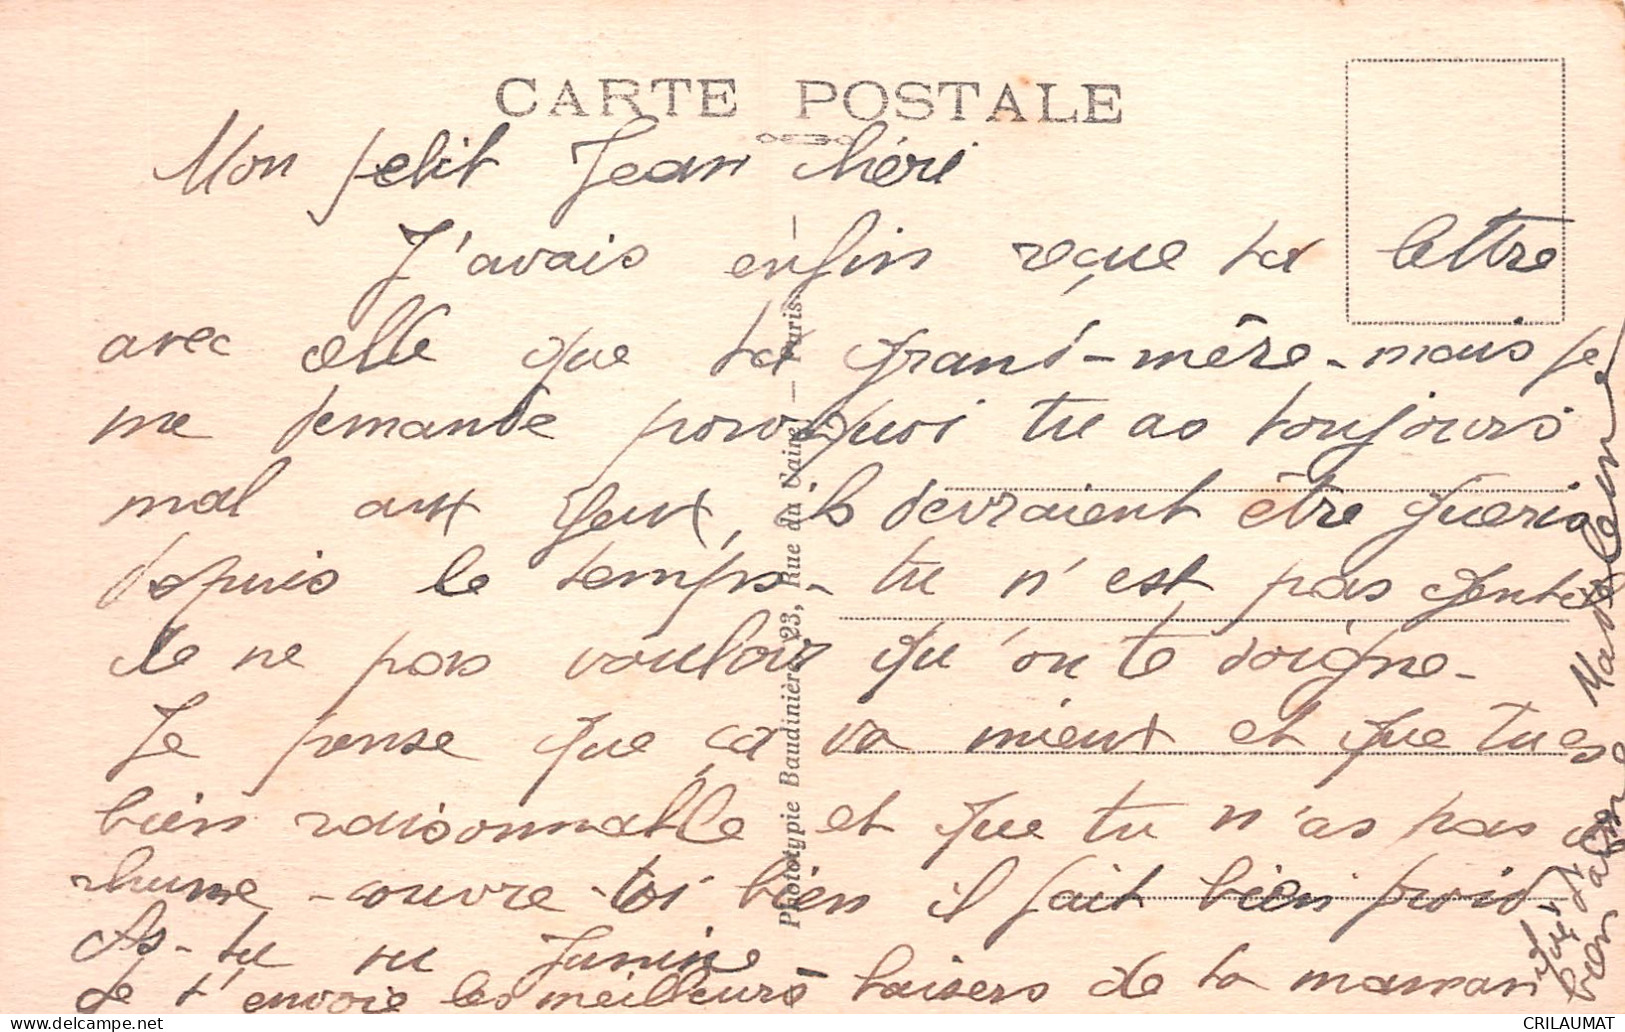 CARTE POSTALE
Mon petit Jean chéri
J'avais enfin reçue ta lettre
avec celle que ta grand-mère - mais je
me demande pourquoi tu as toujours
mal aux yeux, ils devraient être guéris
depuis le temps - tu n'est pas gentil
de ne pas vouloir qu'on te soigne -
Je pense que ça va mieux et que tu es
bien raisonnable et que tu n'as pas de
rhume - couvre-toi bien il fait bien froid
As-tu vu Janine
Je t'envoie les meilleurs baisers de ta maman
bien
Phototypie Baudinière, 23, Rue du Caire — Paris —
CRILAUMAT